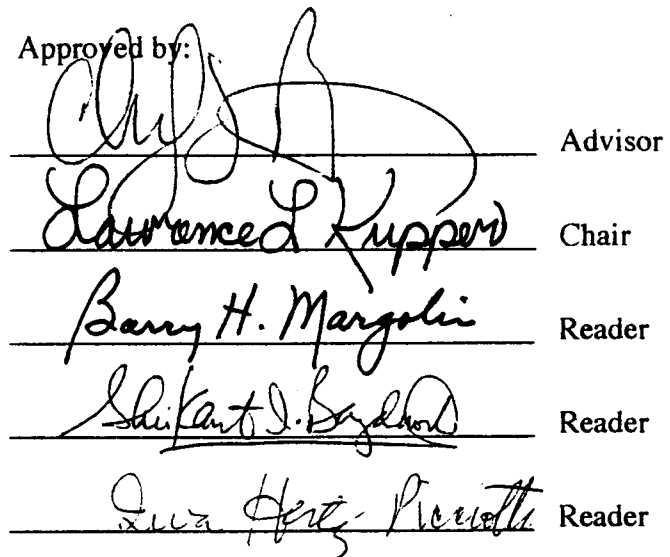 Approved by:
Advisor
Lawrence L Kupper Chair
Barry H. Margolin Reader
Shrikant I. Reader
Hertz Picciotto Reader